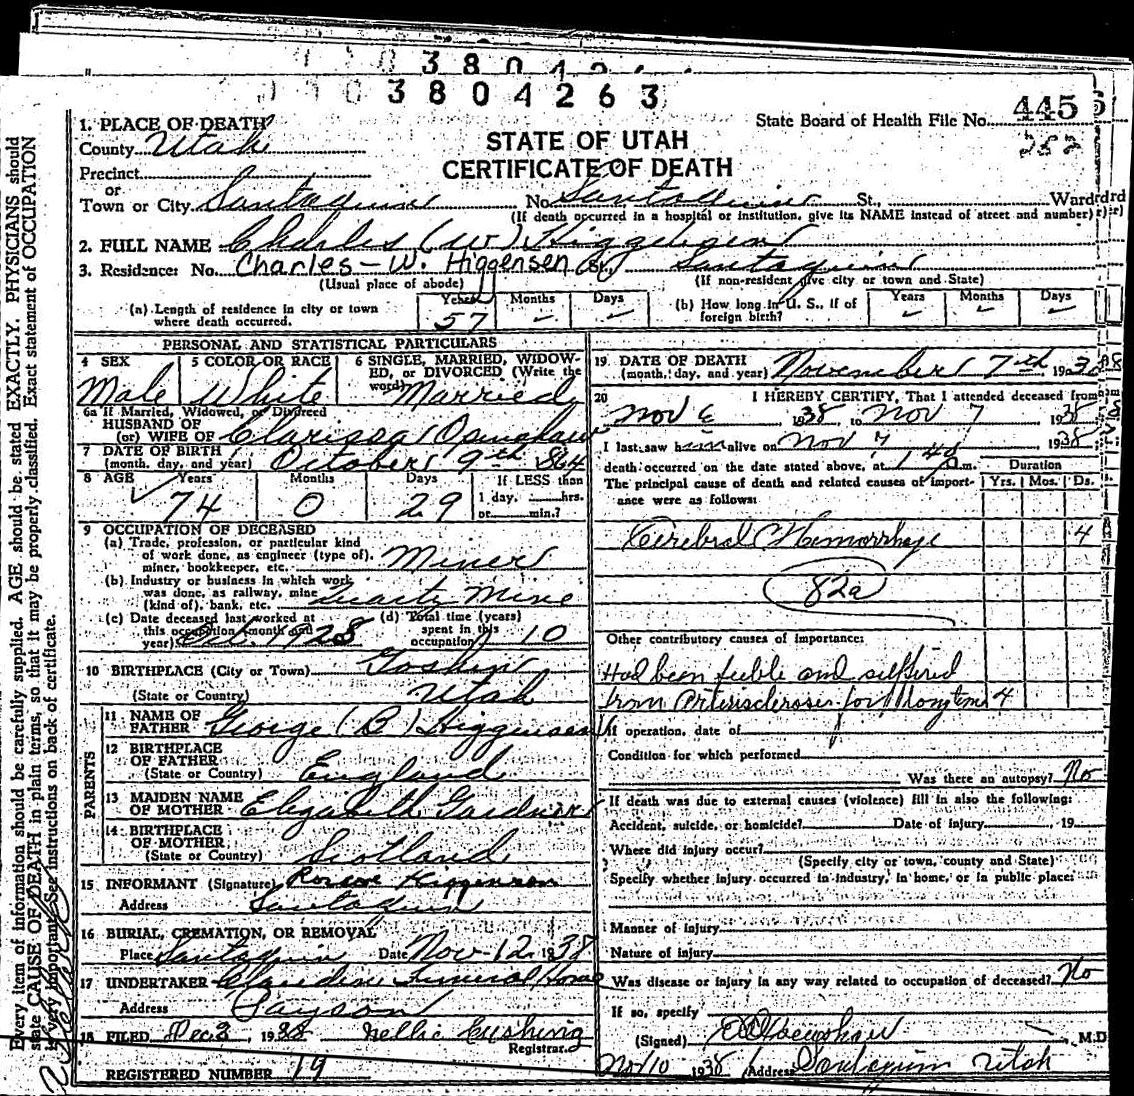 3804263
State Board of Health File No. 445
STATE OF UTAH
CERTIFICATE OF DEATH
1. PLACE OF DEATH
County Utah
Precinct
or
Town or City Santaquin No. Santaquin St., Ward
(If death occurred in a hospital or institution, give its NAME instead of street and number)
2. FULL NAME Charles (W) Higgensen
3. Residence: No. Charles-W. Higgensen St. Santaquin
(Usual place of abode) (If non-resident give city or town and State)
(a) Length of residence in city or town where death occurred. Years 57 Months – Days –
(b) How long in U. S., if of foreign birth? Years – Months – Days –
PERSONAL AND STATISTICAL PARTICULARS
4 SEX Male
5 COLOR OR RACE White
6 SINGLE, MARRIED, WIDOWED, or DIVORCED (Write the word) Married
6a If Married, Widowed, or Divorced
HUSBAND OF
(or) WIFE OF Clarissa
7 DATE OF BIRTH
(month, day, and year) October 9th 864
8 AGE Years 74 Months 0 Days 29 If LESS than 1 day, hrs. or min.?
9 OCCUPATION OF DECEASED
(a) Trade, profession, or particular kind
of work done, as engineer (type of),
miner, bookkeeper, etc. Miner
(b) Industry or business in which work
was done, as railway, mine
(kind of), bank, etc. Quartz Mine
(c) Date deceased last worked at
this occupation (month and
year) 1928
(d) Total time (years)
spent in this
occupation 10
10 BIRTHPLACE (City or Town) Goshen
(State or Country) Utah
PARENTS
11 NAME OF
FATHER George (B) Higgensen
12 BIRTHPLACE
OF FATHER
(State or Country) England
13 MAIDEN NAME
OF MOTHER Elizabeth Gardner
14 BIRTHPLACE
OF MOTHER
(State or Country) Scotland
15 INFORMANT (Signature) Roscoe Higgenson
Address Santaquin
16 BURIAL, CREMATION, OR REMOVAL
Place Santaquin Date Nov-12, 1938
17 UNDERTAKER Funeral Home
Address Payson
18 FILED Dec 3, 1938 Nellie Cushing
Registrar.
REGISTERED NUMBER 19
19 DATE OF DEATH
(month, day, and year) November 7th, 193
20 I HEREBY CERTIFY, That I attended deceased from
Nov 6 1938, to Nov 7 1938
I last saw him alive on Nov 7 1938
death occurred on the date stated above, at 1 m.
The principal cause of death and related causes of importance were as follows:
Duration
Yrs. Mos. Ds.
Cerebral Hemorrhage 4
82a
Other contributory causes of importance:
Had been feeble and suffered
from Arterisclerosis for long time 4
If operation, date of
Condition for which performed
Was there an autopsy? No
If death was due to external causes (violence) fill in also the following:
Accident, suicide, or homicide? Date of injury, 19
Where did injury occur?
(Specify city or town, county and State)
Specify whether injury occurred in industry, in home, or in public place:
Manner of injury
Nature of injury
Was disease or injury in any way related to occupation of deceased? No
If so, specify
(Signed) M.D.
Nov 10 1938 (Address) Santaquin Utah
Every item of information should be carefully supplied. AGE should be stated EXACTLY. PHYSICIANS should
state CAUSE OF DEATH in plain terms, so that it may be properly classified. Exact statement of OCCUPATION
is very important. See instructions on back of certificate.